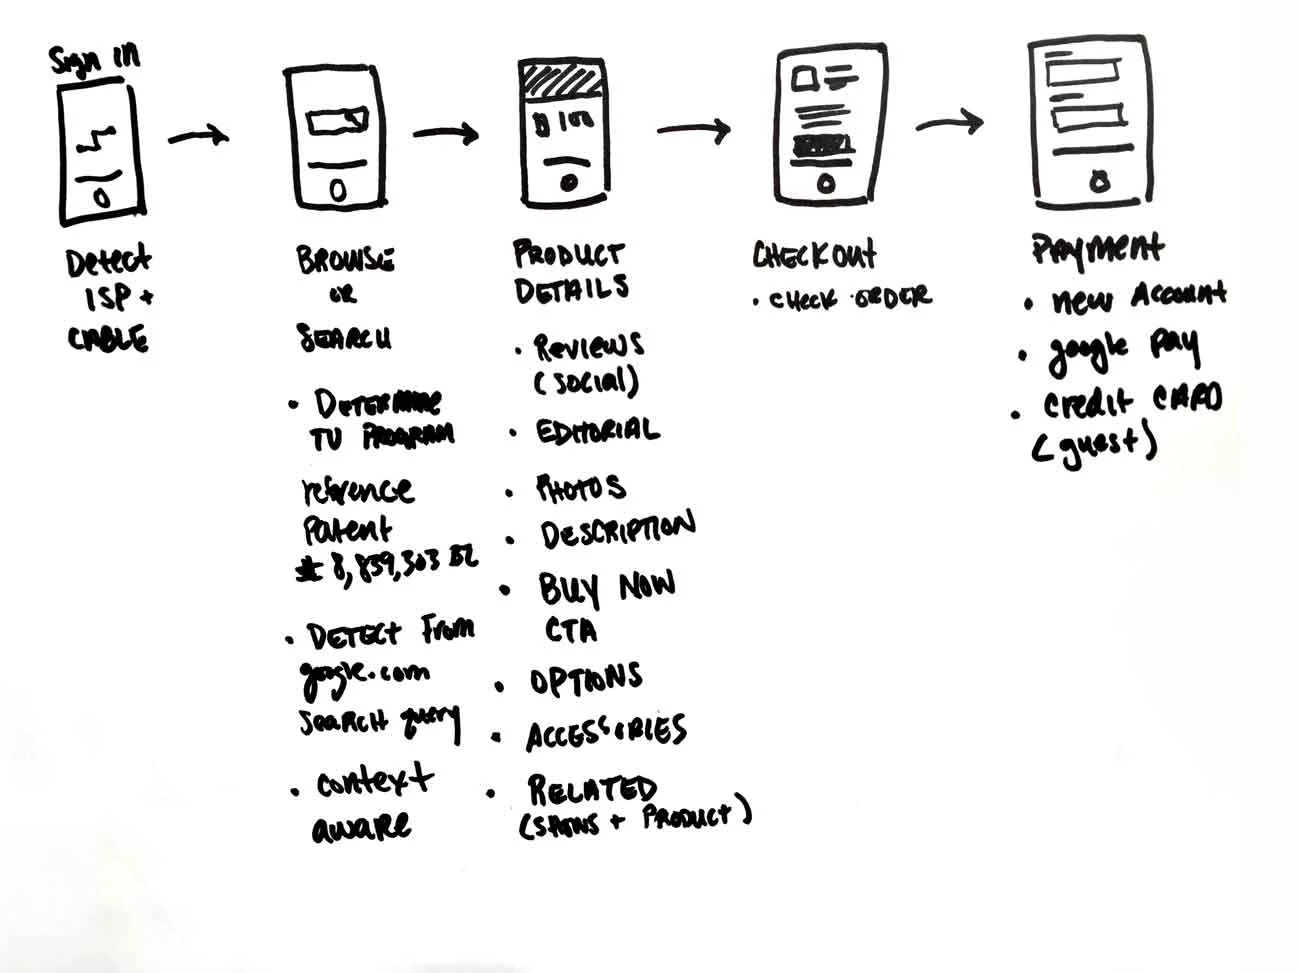 Sign in
Detect
ISP +
CABLE
BROWSE
OR
SEARCH
• DETERMINE
TV PROGRAM
reference
Patent
# 8,839,303 B2
• DETECT From
google.com
SEARCH query
• context
aware
$ 100
PRODUCT
DETAILS
• REVIEWS
(SOCIAL)
• EDITORIAL
• PHOTOS
• DESCRIPTION
• BUY NOW
CTA
• OPTIONS
• ACCESSORIES
• RELATED
(SHOWS + PRODUCT)
CHECKOUT
• CHECK ORDER
PAYMENT
• new Account
• google pay
• credit CARD
(guest)